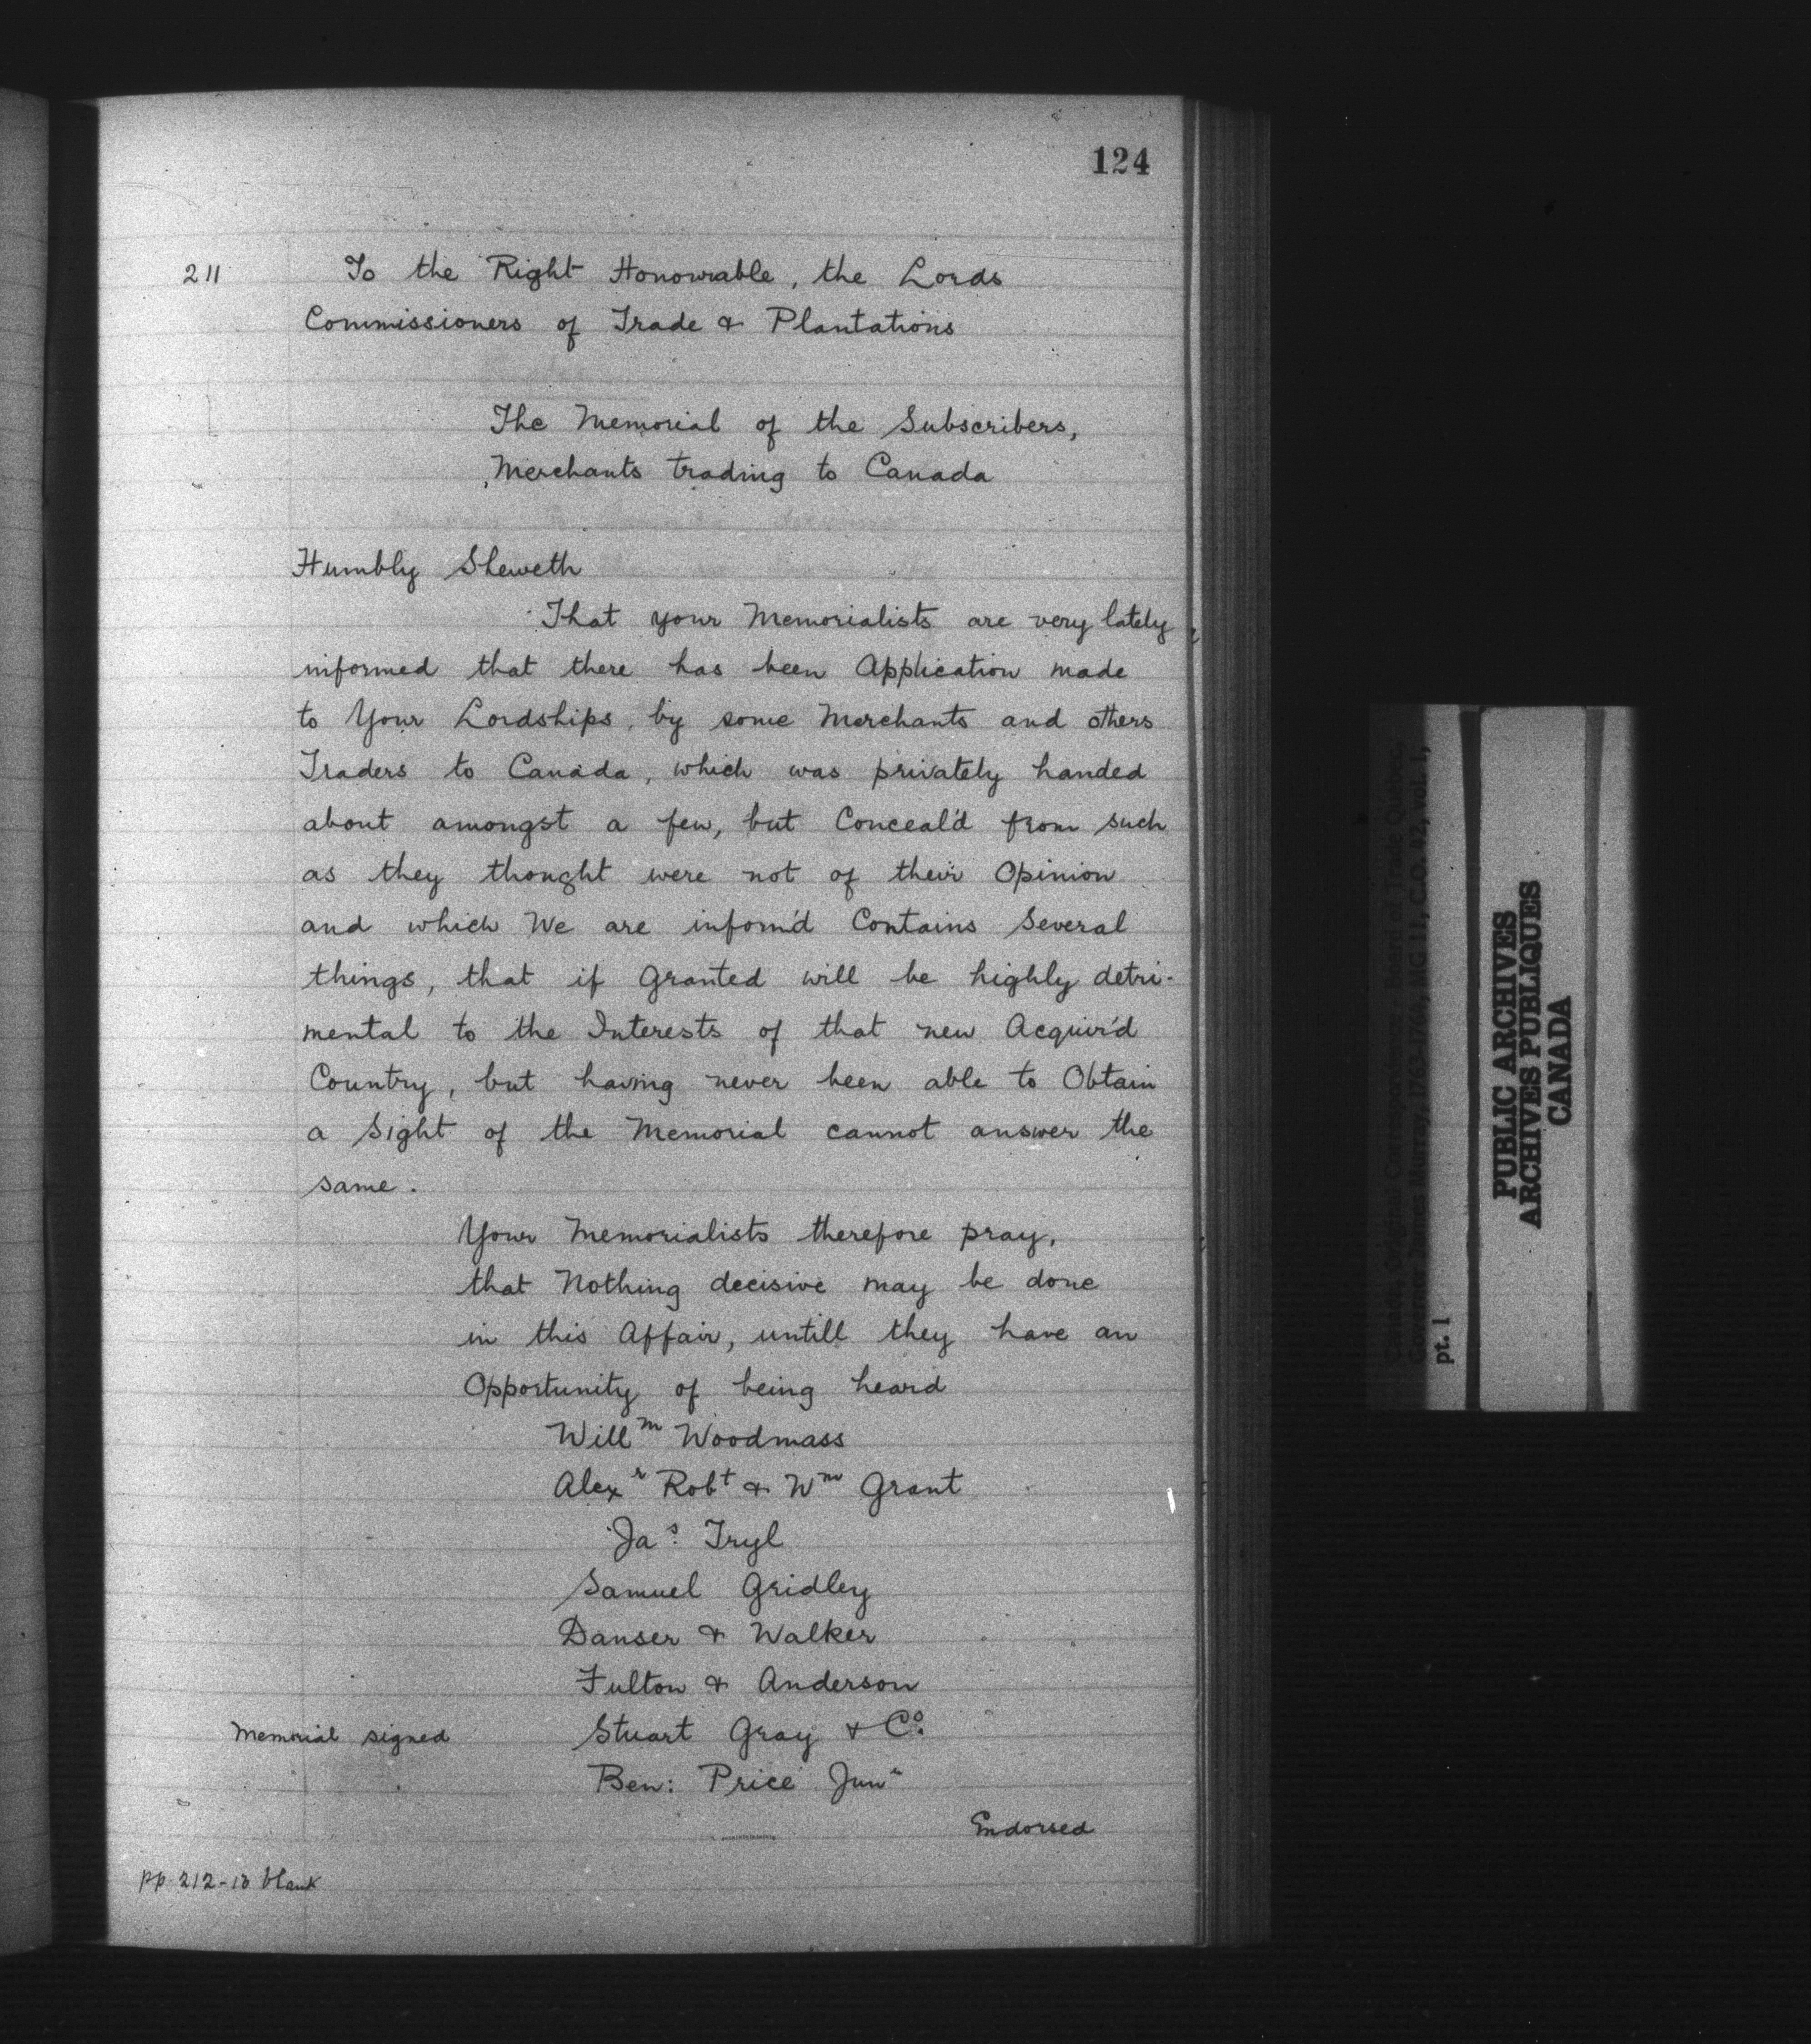 124
211 To the Right Honourable, the Lords
Commissioners of Trade & Plantations
The Memorial of the Subscribers,
Merchants trading to Canada
Humbly Sheweth
That your Memorialists are very lately
informed that there has been Application made
to Your Lordships, by some Merchants and others
Traders to Canada, which was privately handed
about amongst a few, but Conceal'd from such
as they thought were not of their Opinion
and which We are infom'd Contains Several
things, that if Granted will be highly detri-
mental to the Interests of that new Acquir'd
Country, but having never been able to Obtain
a Sight of the Memorial cannot answer the
same.
Your Memorialists therefore pray,
that Nothing decisive may be done
in this Affair, untill they have an
Opportunity of being heard
Will^m Woodmass
Alex^r Rob^t & W^m Grant
Ja^s. Tryl
Samuel Gridley
Danser & Walker
Fulton & Anderson
Memorial signed Stuart Gray & C^o.
Ben: Price Jun^r
Endorsed
pp 212-13 blank
Canada, Original Correspondence - Board of Trade Quebec,
Governor James Murray, 1763-1764, MG 11, C.O. 42, vol. 1,
pt. 1
PUBLIC ARCHIVES
ARCHIVES PUBLIQUES
CANADA